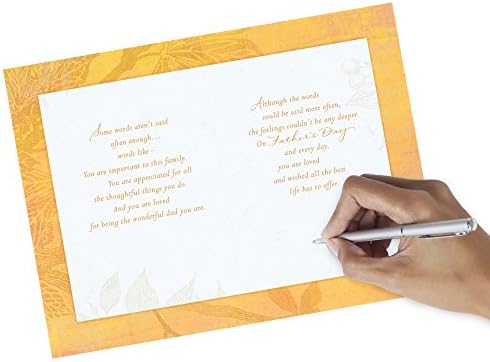 Some words aren't said
often enough...
words like—
You are important to this family.
You are appreciated for all
the thoughtful things you do.
And you are loved
for being the wonderful dad you are.
Although the words
could be said more often,
the feelings couldn't be any deeper.
On Father's Day
and every day,
you are loved
and wished all the best
life has to offer.